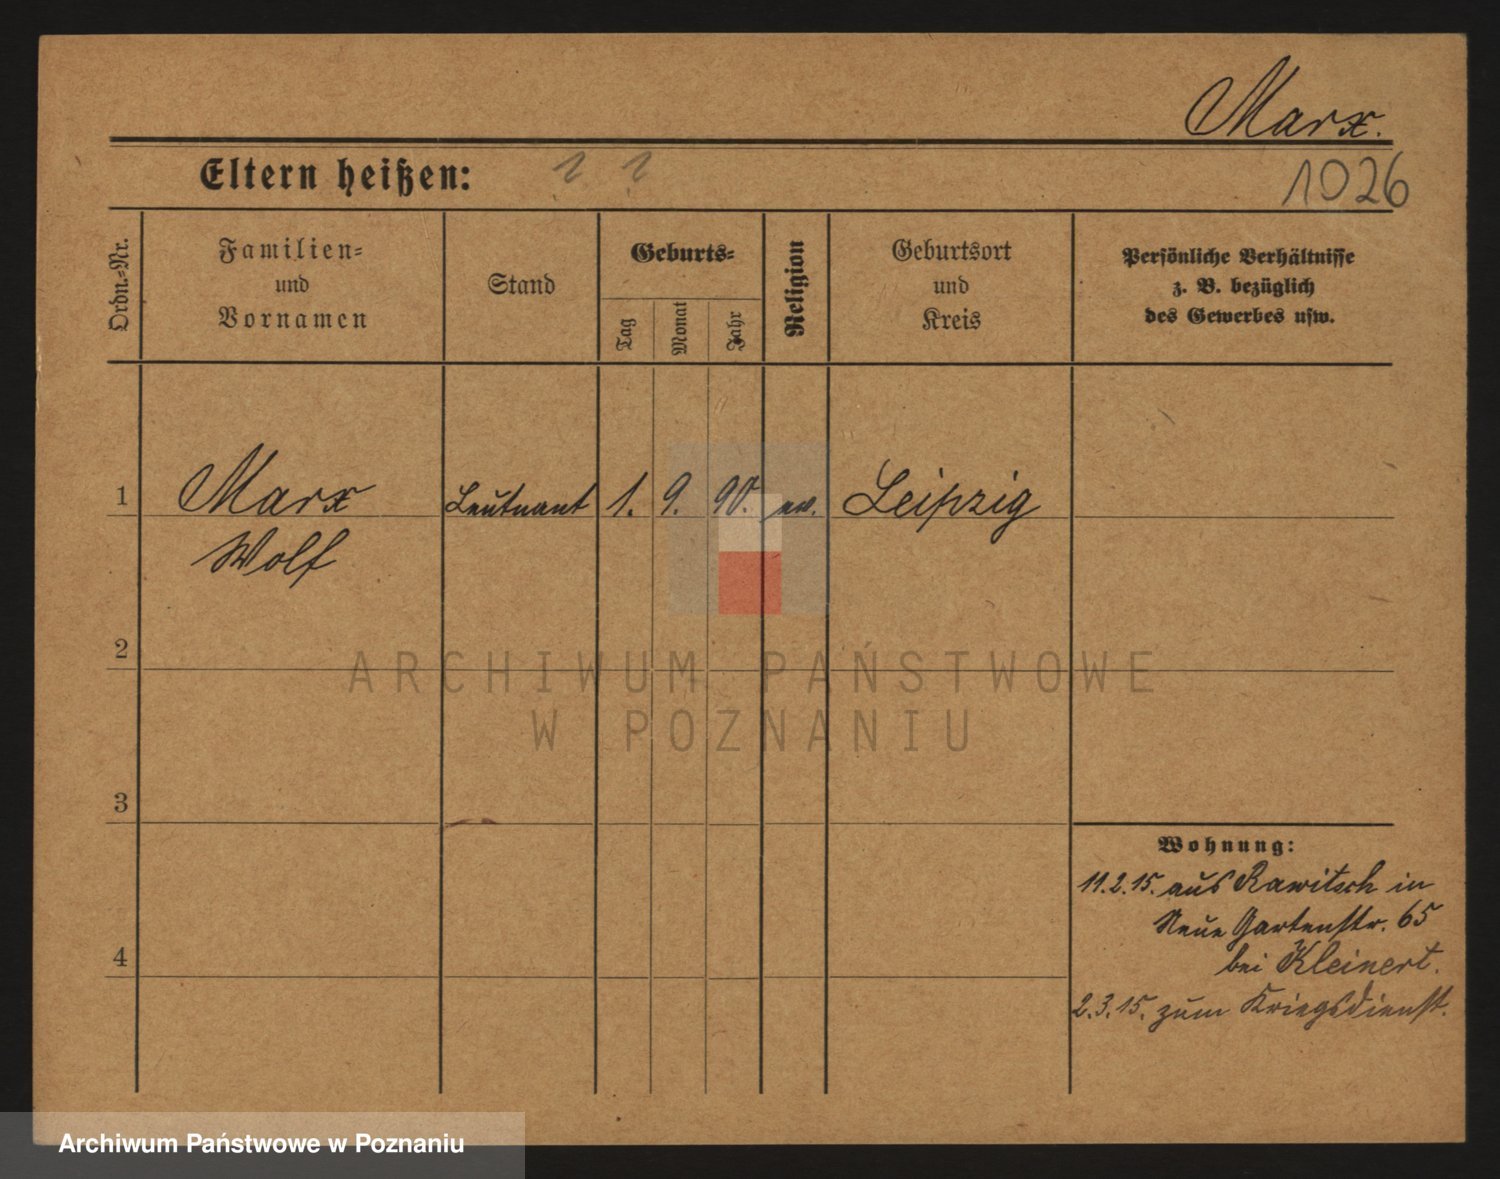 Marx.
Eltern heißen:
1026
Ordn.-Nr.
Familien-
und
Vornamen
Stand
Geburts-
Tag
Monat
Jahr
Religion
Geburtsort
und
Kreis
Persönliche Verhältnisse
z. B. bezüglich
des Gewerbes usw.
1 Marx Leutnant 1. 9. 90. ev. Leipzig
Wolf
2
ARCHIWUM PAŃSTWOWE
W POZNANIU
3
Wohnung:
11.2.15. aus Rawitsch in
Neue Gartenstr. 65
4
bei Kleinert.
2.3.15. zum Kriegsdienst.
Archiwum Państwowe w Poznaniu